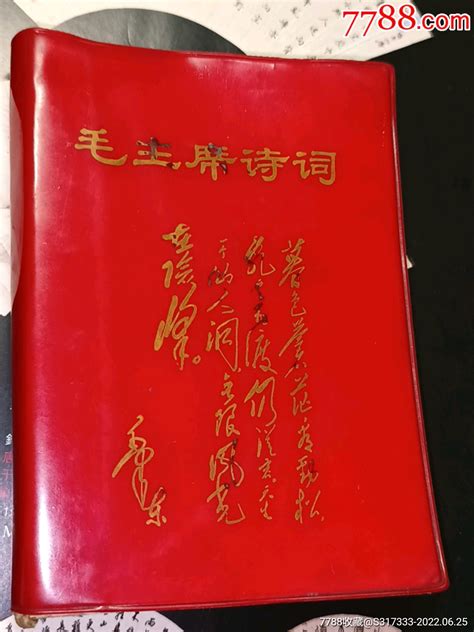 7788.com
中国收藏热线
毛主席诗词
暮色苍茫看劲松
乱云飞渡仍从容天生
一个仙人洞无限风光
在险峰。
毛泽东
7788收藏@S317333-2022.06.25